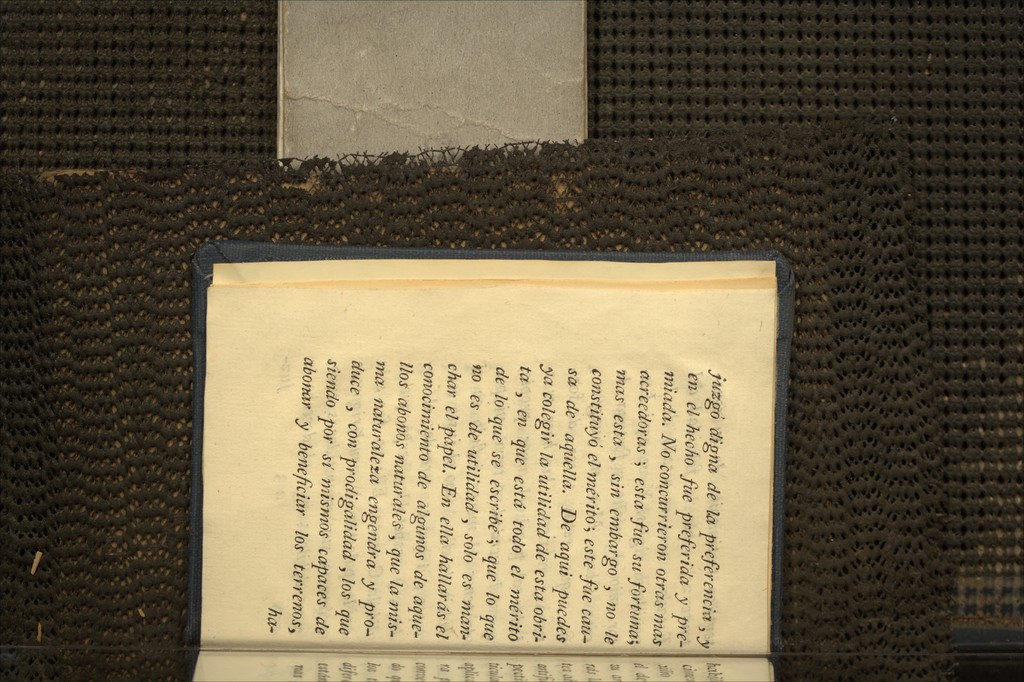 juzgó digna de la preferencia, y
en el hecho fue preferida y pre-
miada. No concurrieron otras mas
acreedoras; esta fue su fortuna;
mas esta, sin embargo, no le
constituyó el mérito; este fue cau-
sa de aquella. De aqui puedes
ya colegir la utilidad de esta obri-
ta, en que está todo el mérito
de lo que se escribe; que lo que
no es de utilidad, solo es man-
char el papel. En ella hallarás el
conocimiento de algunos de aque-
llos abonos naturales, que la mis-
ma naturaleza engendra y pro-
duce, con prodigalidad, los que
siendo por sí mismos capaces de
abonar y beneficiar los terrenos,
ha-